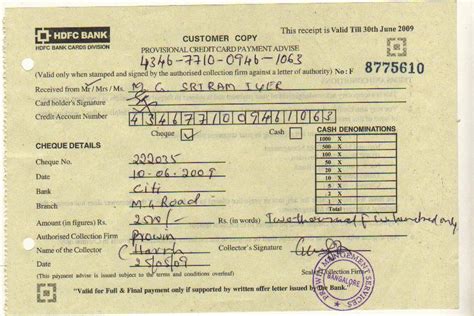 HDFC BANK
HDFC BANK CARDS DIVISION
This receipt is Valid Till 30th June 2009
CUSTOMER COPY
PROVISIONAL CREDIT CARD PAYMENT ADVISE
4346-7710-0946-1063
(Valid only when stamped and signed by the authorised collection firm against a letter of authority) No: F 8775610
Received from Mr / Mrs / Ms. M. G. SRIRAM IYER
Card holder's Signature
Credit Account Number 4346771009461063
Cheque ✓ Cash
CHEQUE DETAILS
CASH DENOMINATIONS
1000 X
500 X
100 X
50 X
20 X
10 X
5 X
TOTAL
Cheque No. 222035
Date 10-06-2009
Bank Citi
Branch M.G Road
Amount (in figures) Rs. 2500/- Rs. (in words) Two thousand five hundred only
Authorised Collection Firm Prowin
Name of the Collector Collector's Signature
Date 25/05/09
(This payment advise is issued subject to the terms and conditions overleaf)
Seal of Collection Firm
PROWIN MANGEMENT SERVICES
BANGALORE
"Valid for Full & Final payment only if supported by written offer letter issued by the Bank"